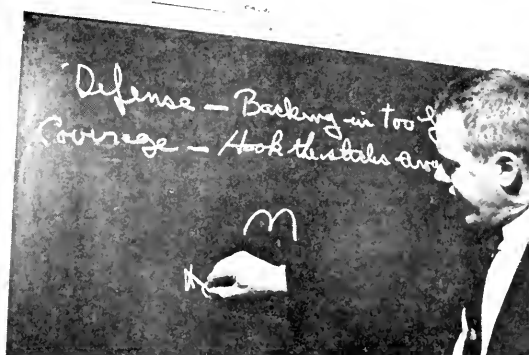 Defense — Backing in too
Coverage — Hook the
M